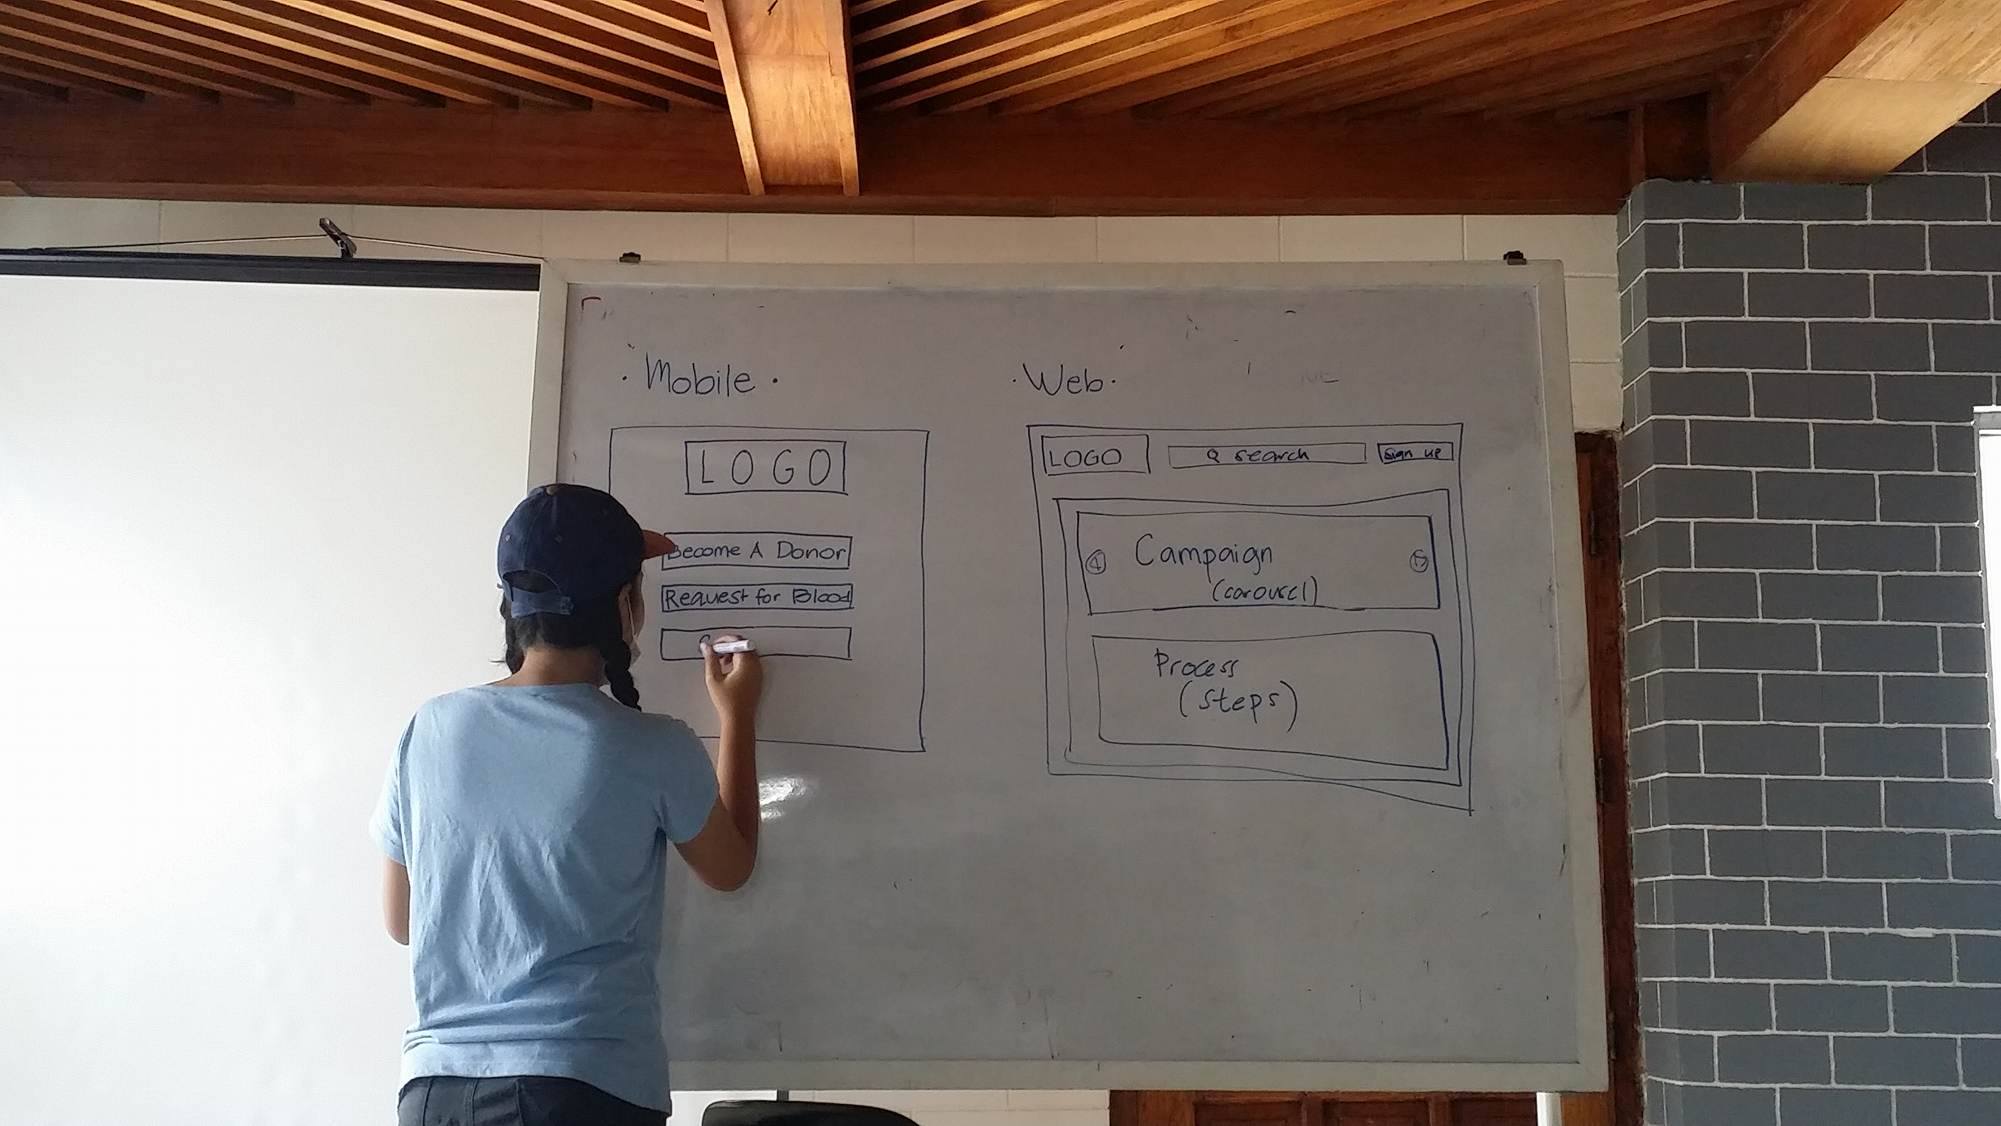 · Mobile ·
LOGO
Become A Donor
Request for Blood
· Web ·
LOGO
search
Sign up
Campaign
(carousel)
Process
(Steps)